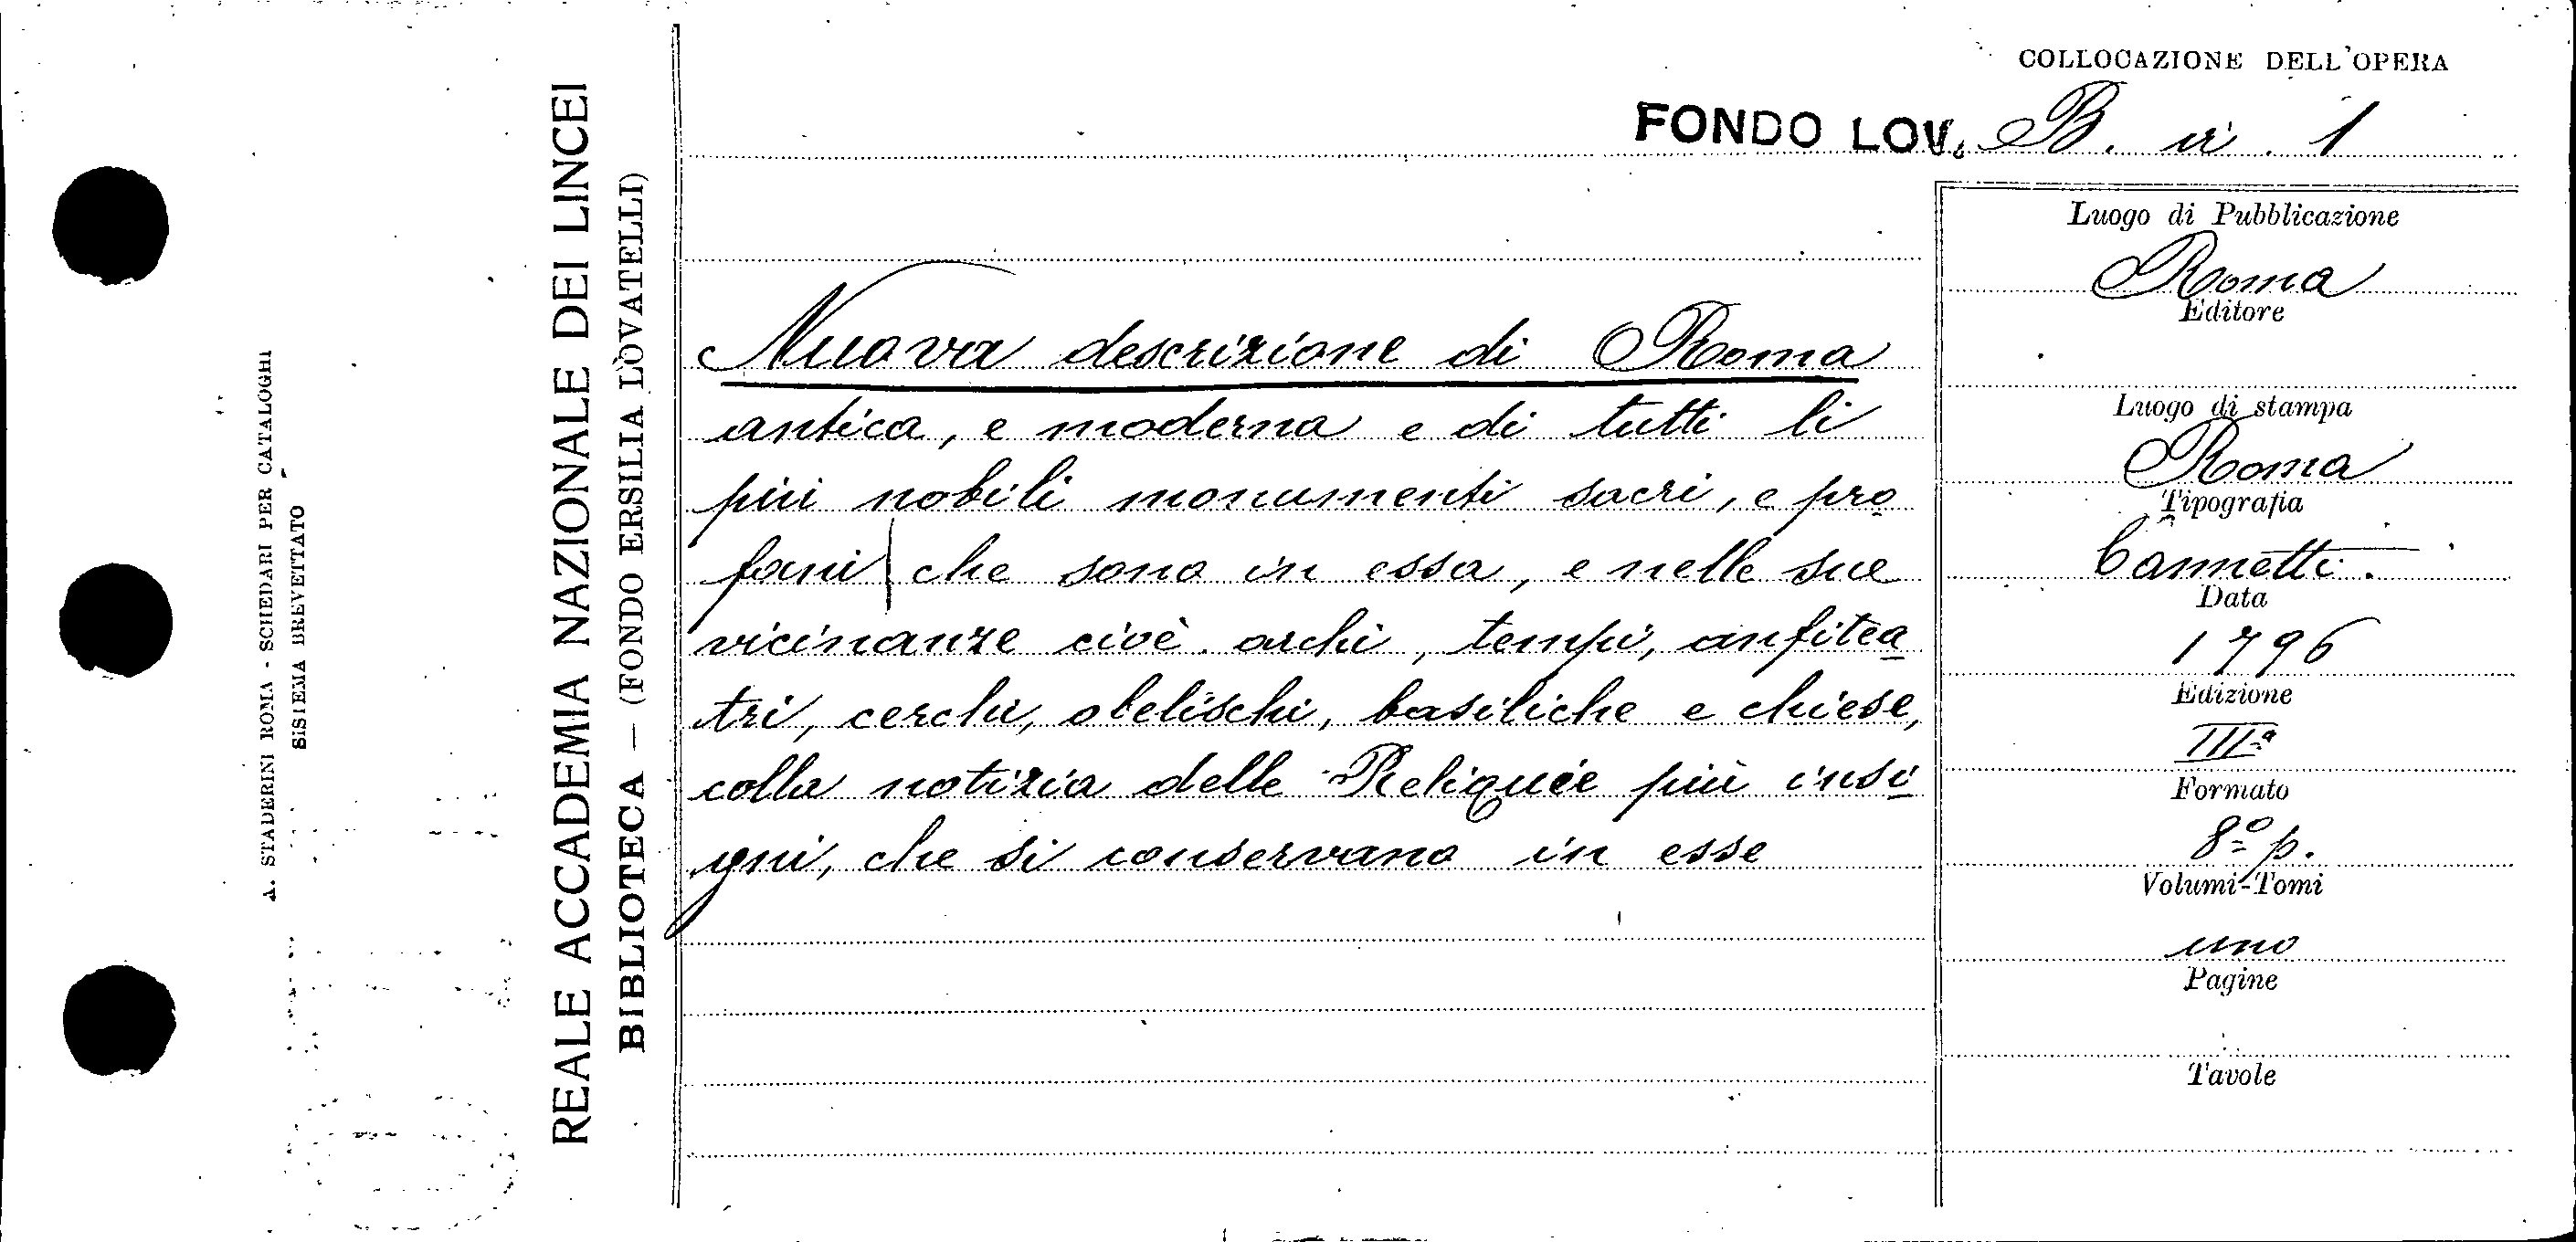 COLLOCAZIONE DELL'OPERA
FONDO LOV. B. vi. 1
Nuova descrizione di Roma
antica, e moderna e di tutti li
più nobili monumenti sacri, e pro
fani | che sono in essa, e nelle sue
vicinanze cioè archi, tempi, anfitea
tri, cerchi, obelischi, basiliche e chiese,
colla notizia delle Reliquie più insi
gni, che si conservano in esse
Luogo di Pubblicazione
Roma
Editore
Luogo di stampa
Roma
Tipografia
Cannetti.
Data
1796
Edizione
IIIª
Formato
8º p.
Volumi-Tomi
uno
Pagine
Tavole
REALE ACCADEMIA NAZIONALE DEI LINCEI
BIBLIOTECA — (FONDO ERSILIA LOVATELLI)
A. STADERINI ROMA - SCHEDARI PER CATALOGHI
SISTEMA BREVETTATO